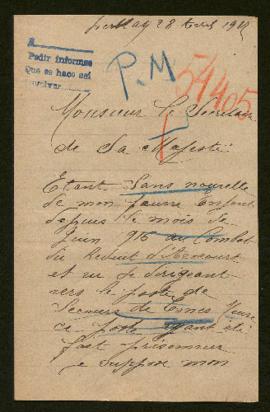 28 Avril 191
A
Pedir informes
Que se hace así
P. M
54405
Monsieur le Secretaire
de Sa Majesté
Etant Sans nouvelle
de mon pauvre enfant
depuis le mois de
Juin 916 au Combat
du Reduit d'Avocourt
et en se dirigeant
vers le poste de
Secours de Esnes
ce poste ayant eté
fait prisonnier
je suppose mon